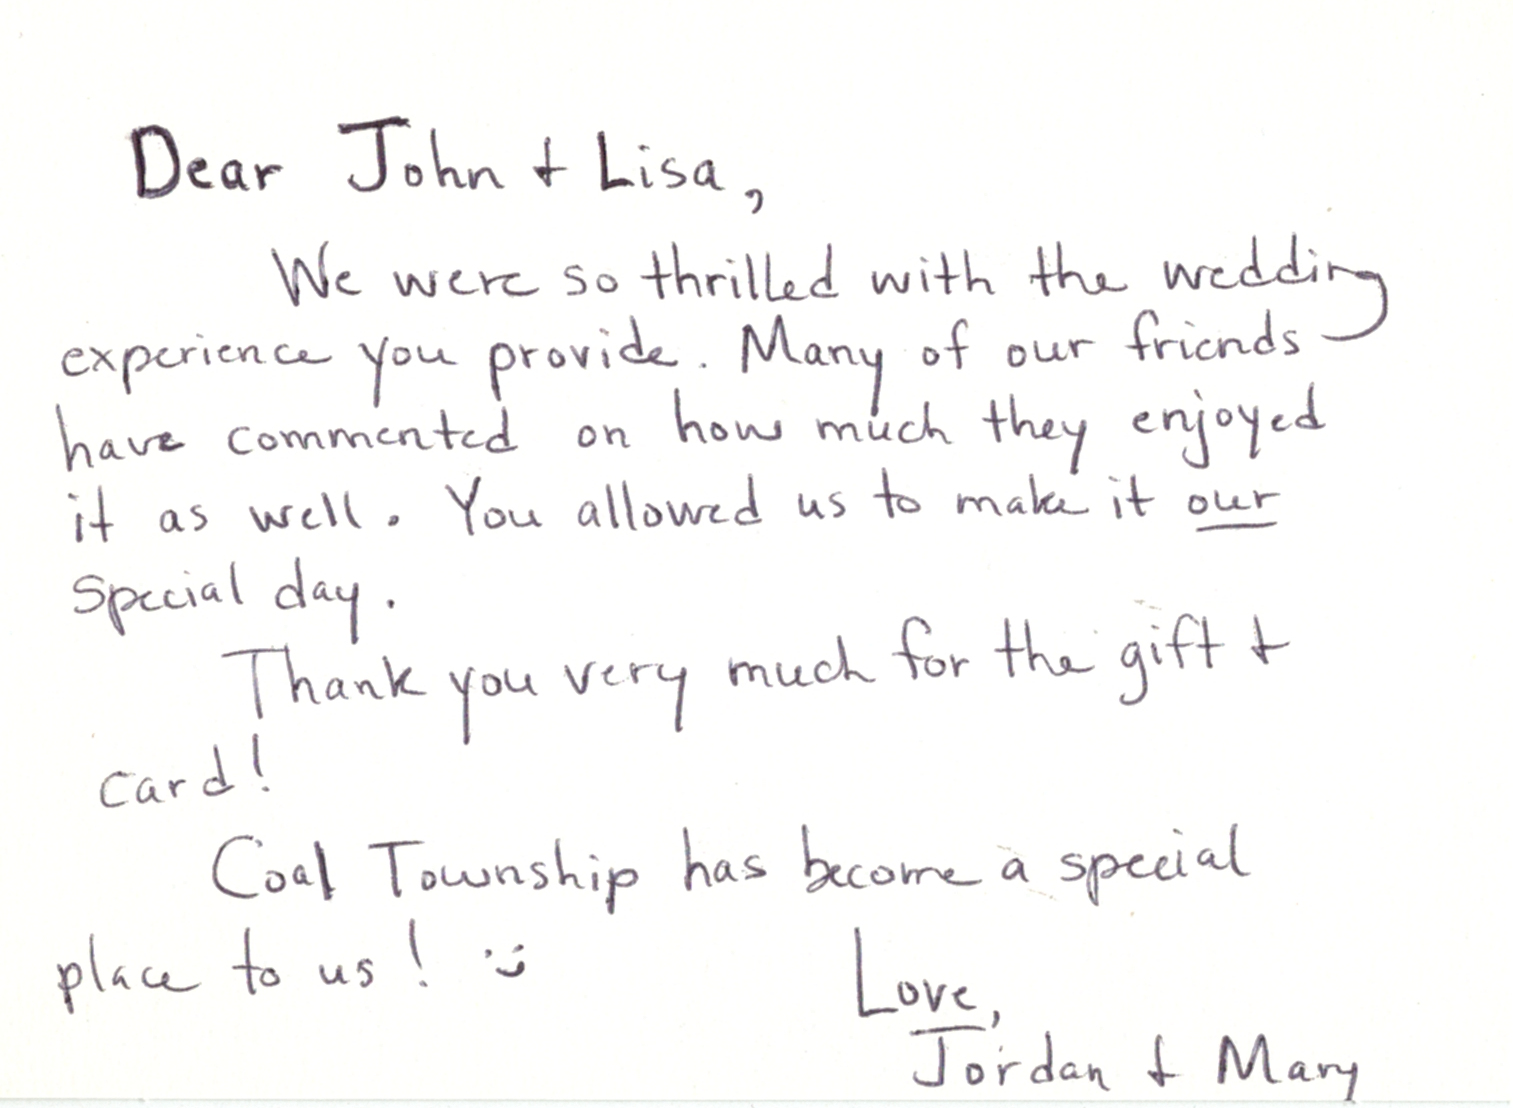 Dear John + Lisa,
We were so thrilled with the wedding
experience you provide. Many of our friends
have commented on how much they enjoyed
it as well. You allowed us to make it our
special day.
Thank you very much for the gift +
card!
Coal Township has become a special
place to us! :)
Love,
Jordan + Mary